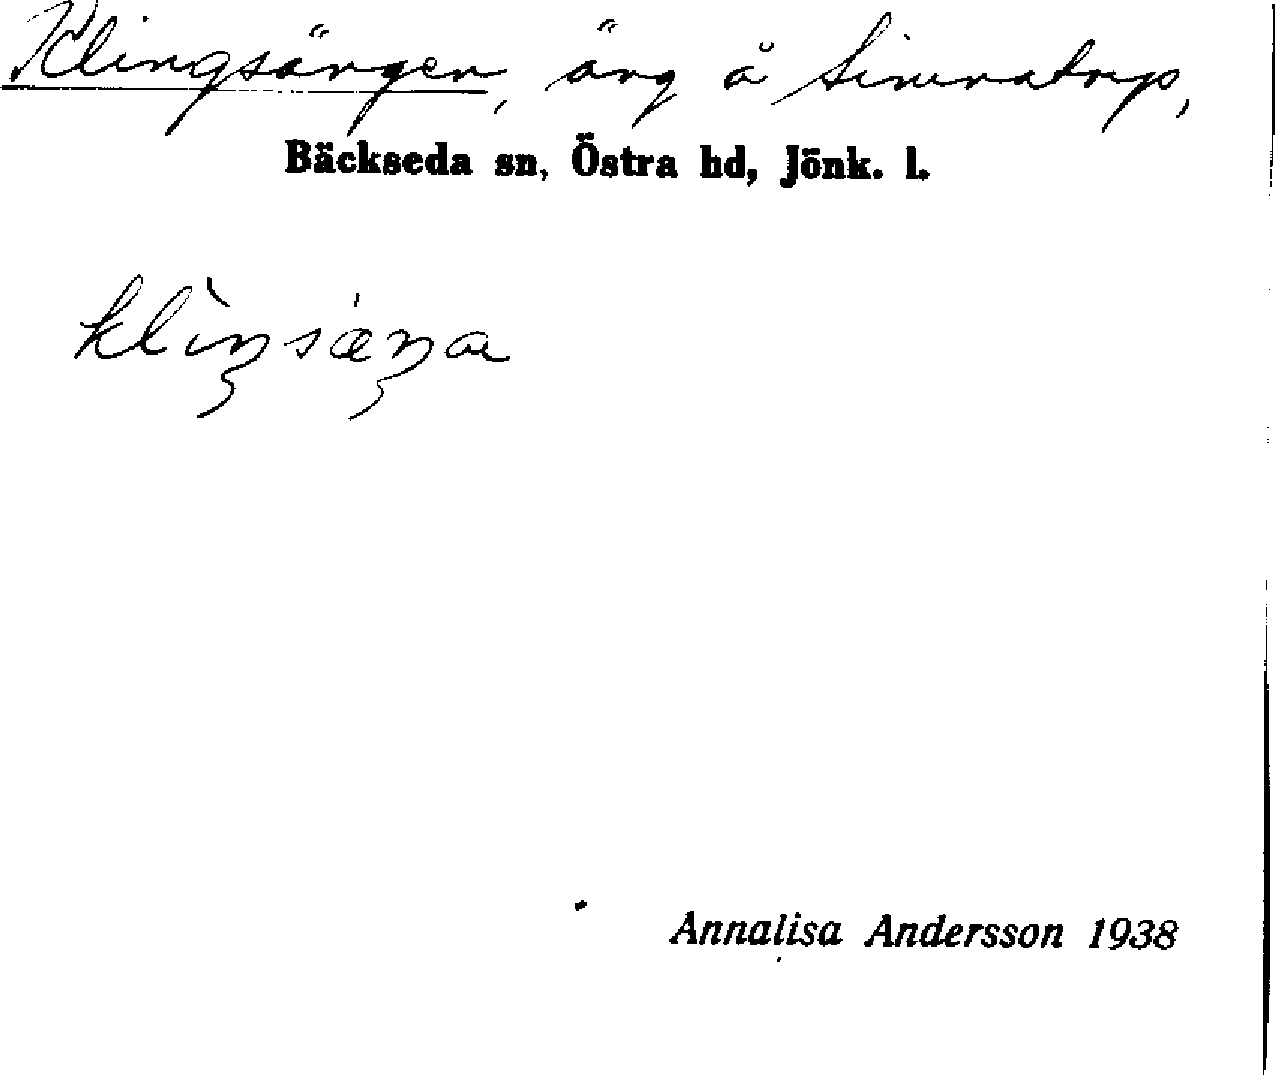 Klingsängen, äng å Simnatorp,
Bäckseda sn, Östra hd, Jönk. l.
klìŋsæ̀ŋa
Annalisa Andersson 1938